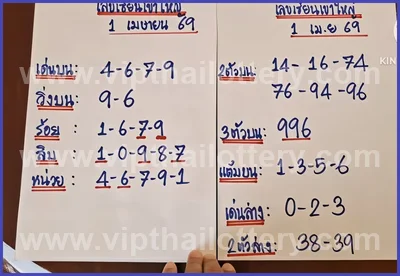 เลขเซียนเขาใหญ่
1 เมษายน 69
เด่นบน: 4-6-7-9
วิ่งบน: 9-6
ร้อย : 1-6-7-9
สิบ : 1-0-9-8-7
หน่วย: 4-6-7-9-1
เลขเซียนเขาใหญ่
1 เม.ย 69
2ตัวบน: 14-16-74
76-94-96
3ตัวบน: 996
แต้มบน: 1-3-5-6
เด่นล่าง: 0-2-3
2ตัวล่าง: 38-39
KIN
www.vipthailottery.com
www.vipthailottery.com
www.vipthailottery.com